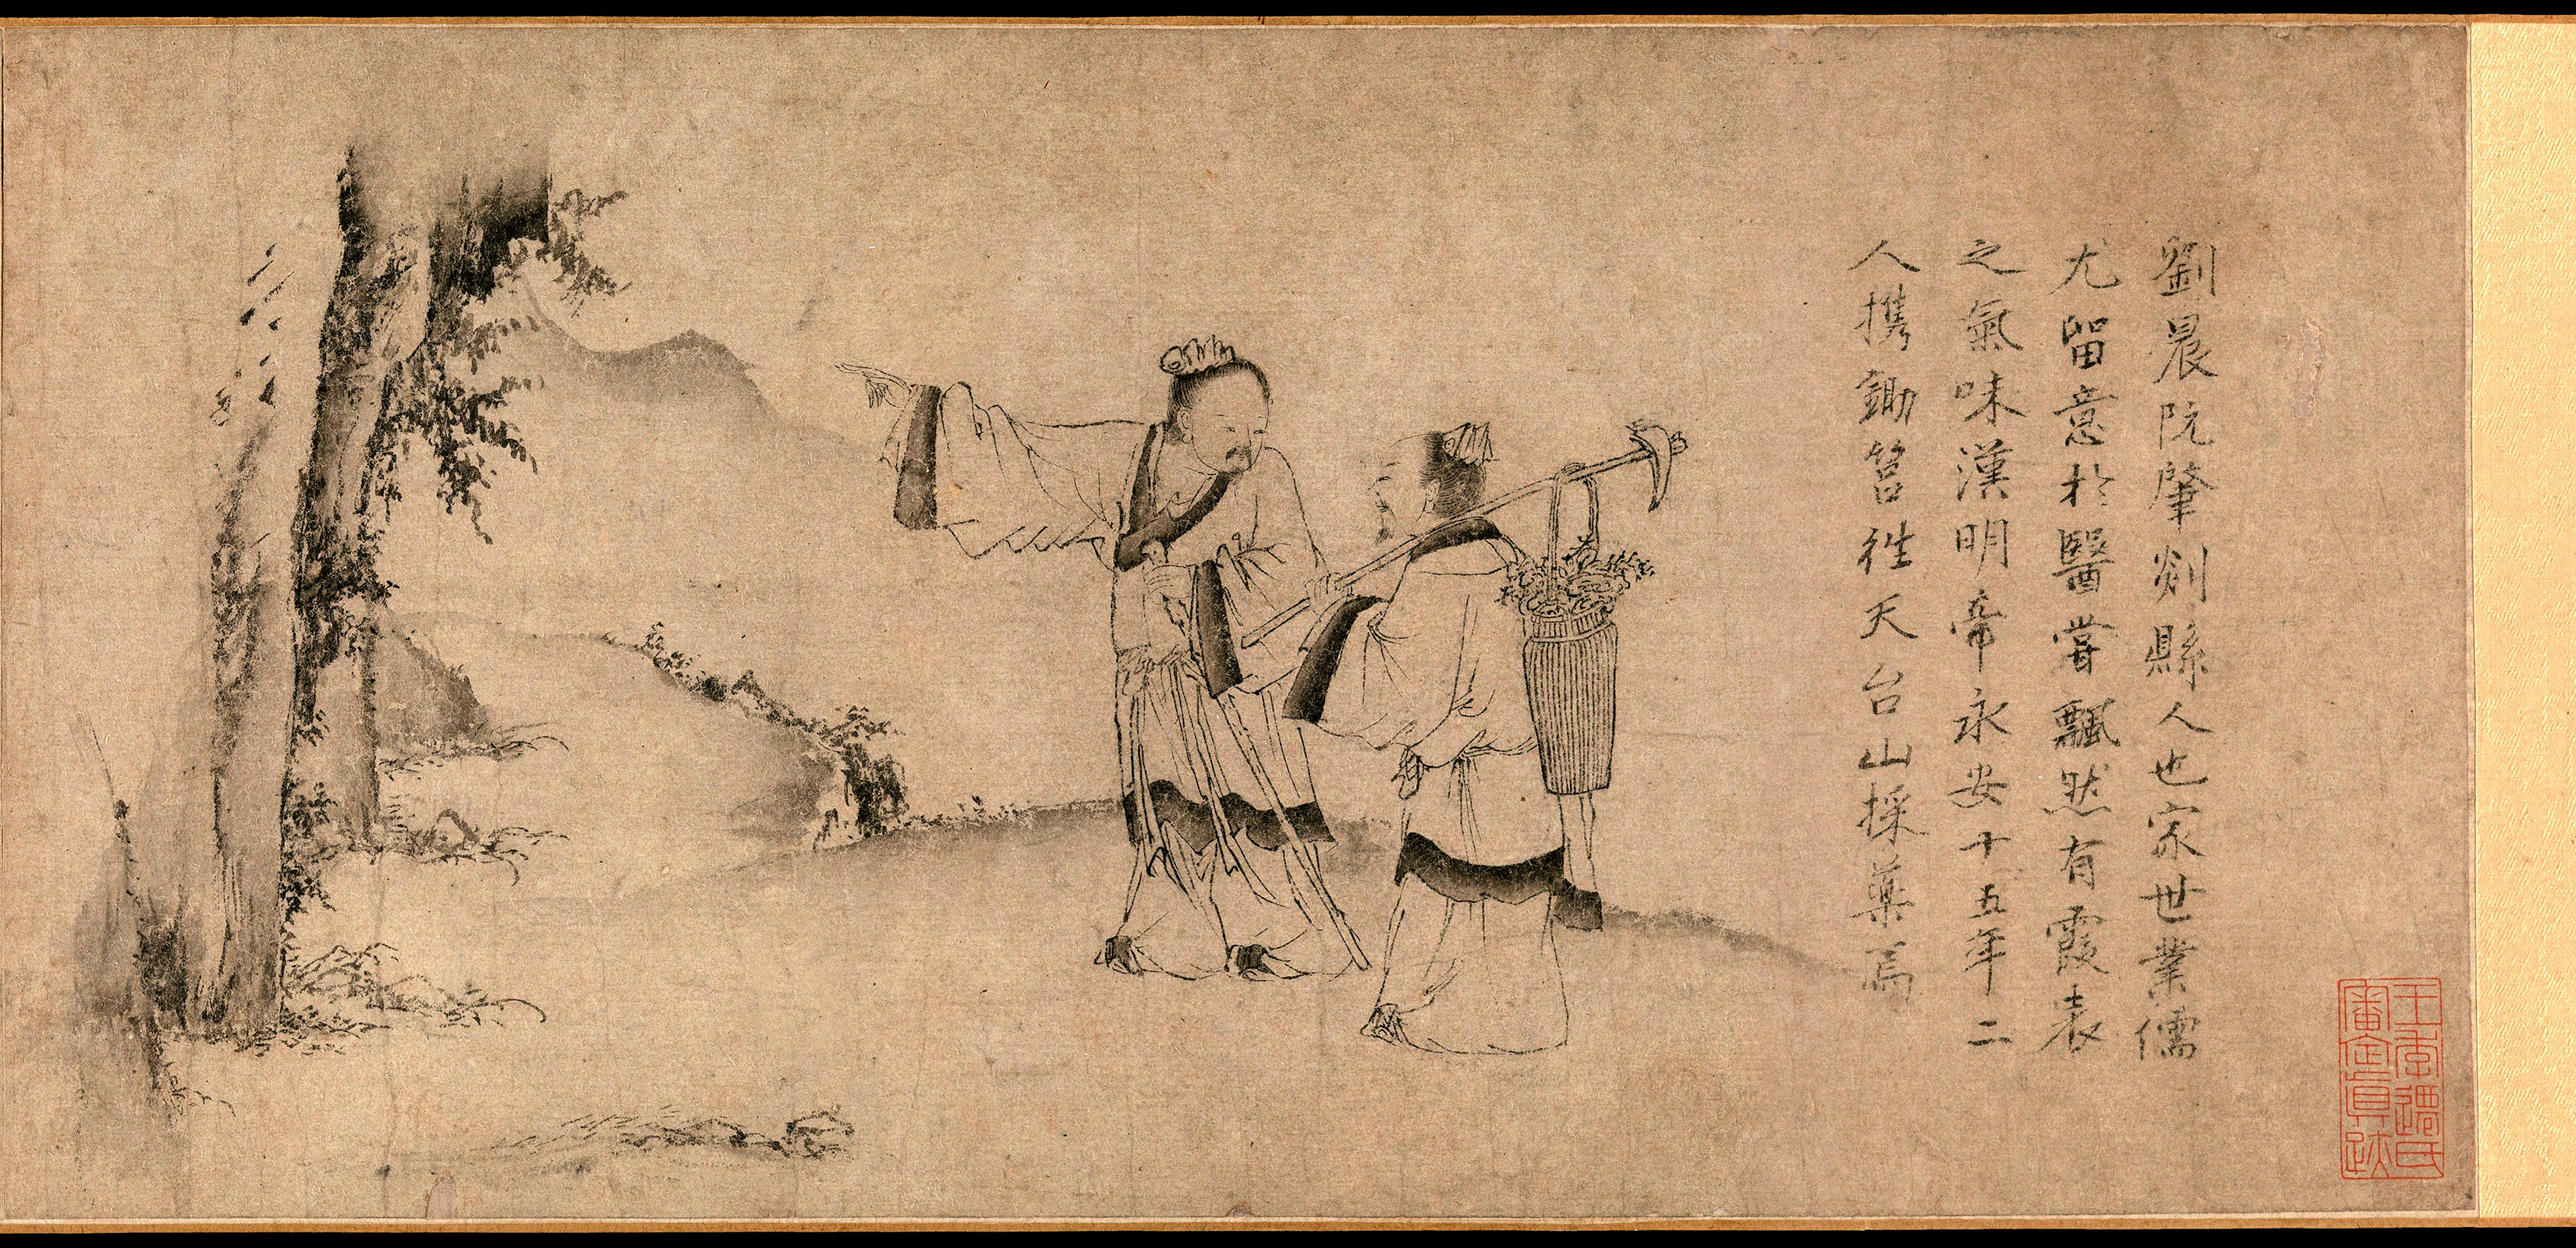 劉晨阮肇剡縣人也家世業儒
尤留意於醫嘗飄然有霞表
之氣味漢明帝永安十五年二
人携鋤筥徃天台山採藥焉
王季遷氏
審定真跡